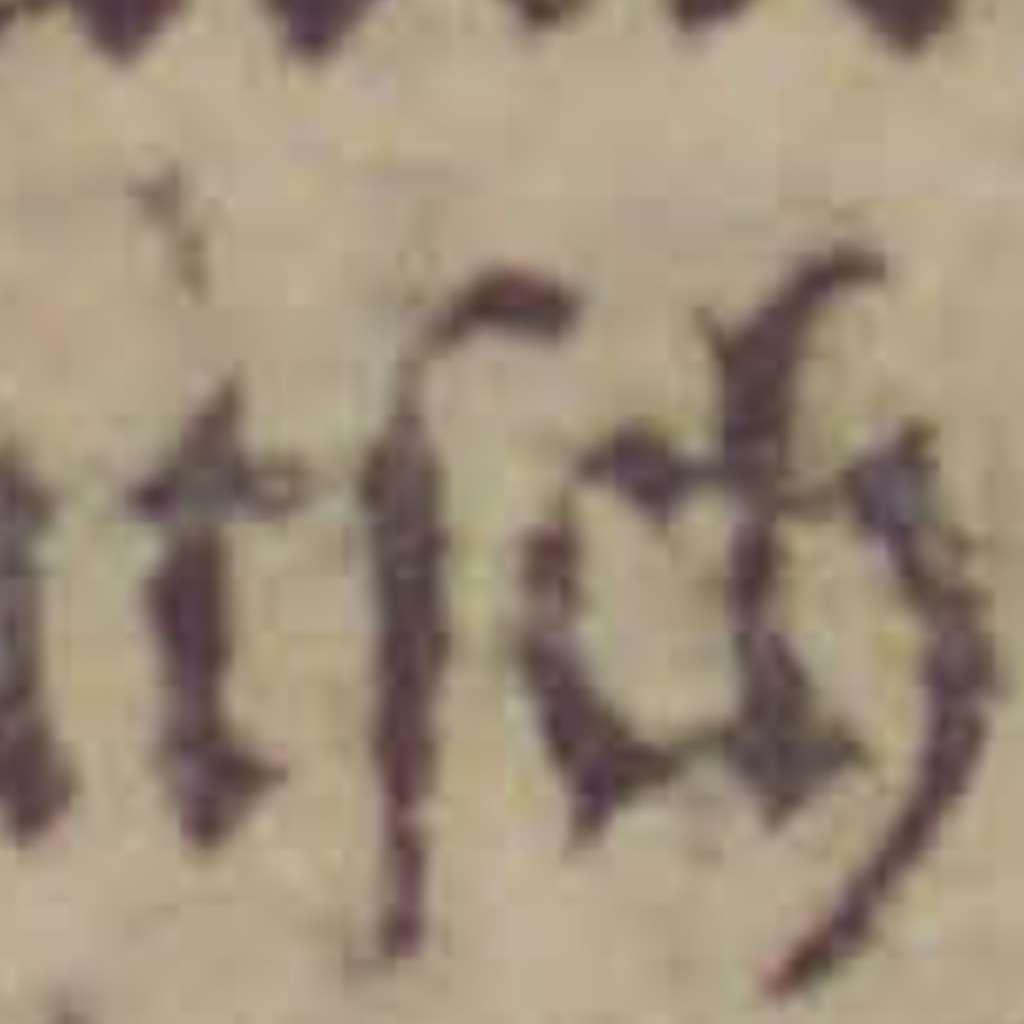 tſch